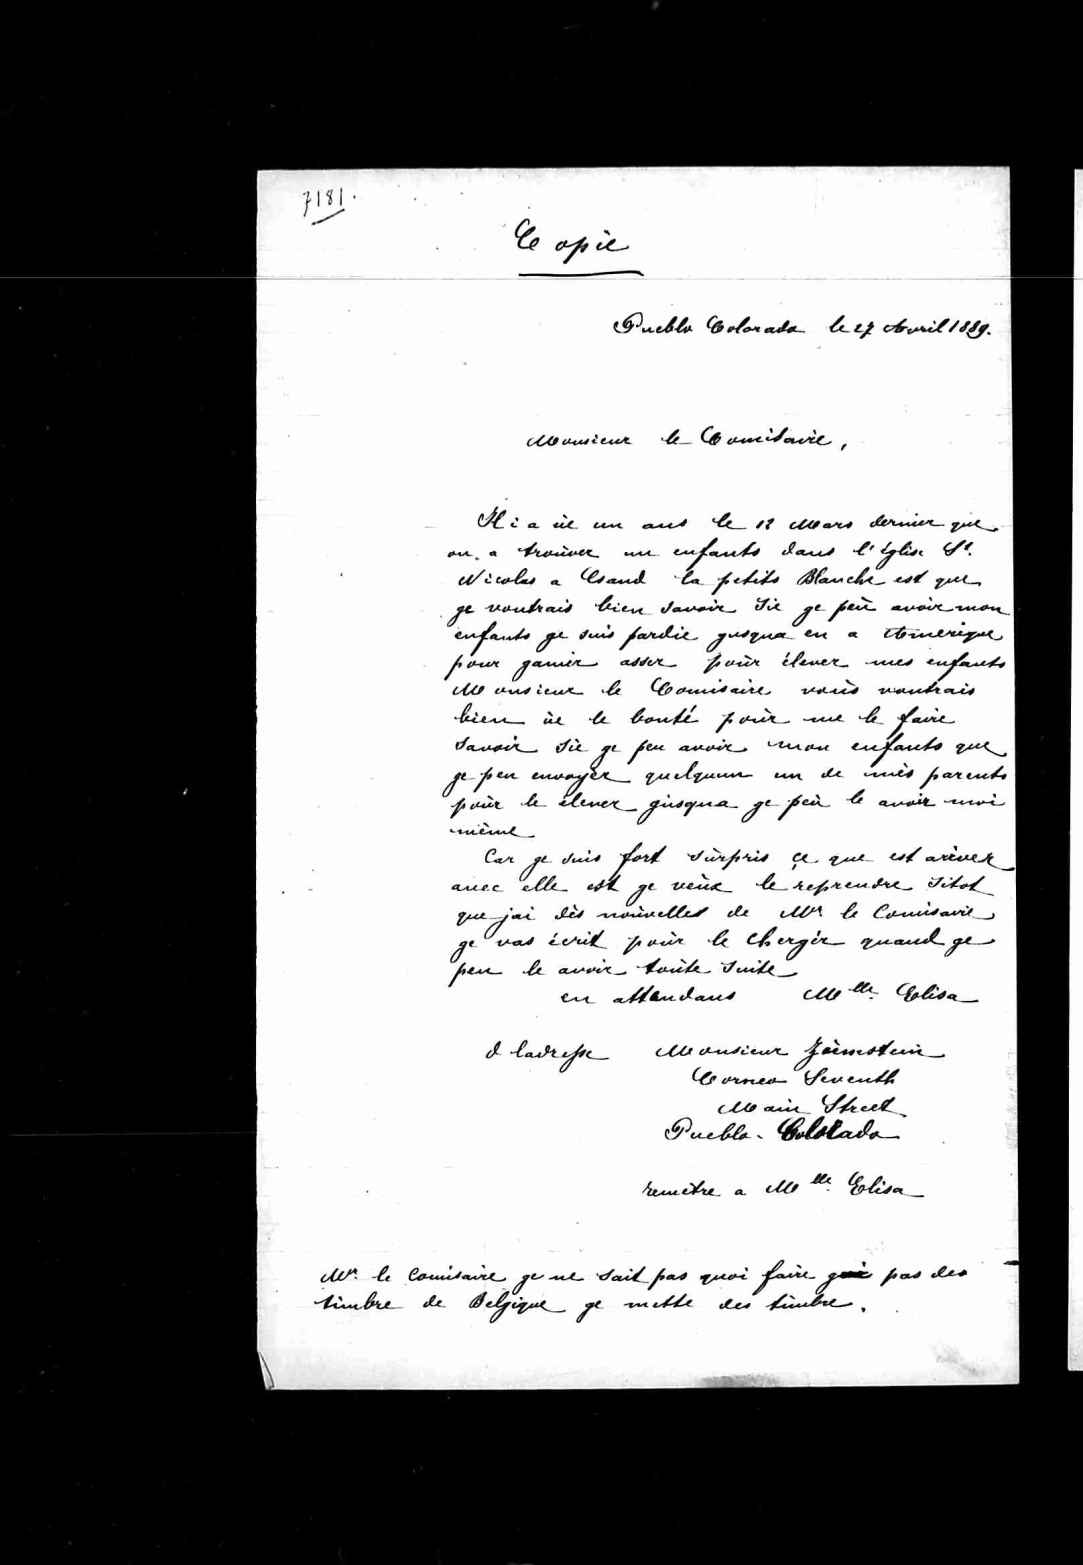 7181.
Copie
Pueblo Colorado le 27 Avril 1889.
Monsieur le Comisaire,
Il i a ùe un ans le 12 Mars dernier que
on a trouver un enfants dans l'église St.
Nicolas a Gsand la petits Blanche est que
ge voutrais bien savoir sie ge peù avoir mon
enfants ge suis pardie gusqua en a Amerique
pour ganier asser poùr élever mes enfants
Monsieur le Comisaire voùs voutrais
bien ùe le bonté poùr me le faire
savoir sie ge peu avoir mon enfants que
ge peu envoyer quelquun un de mès parents
poùr le élever gùsqua ge peù le avoir moi
mème
Car ge suis fort sùrpris çe que est arèver
avec elle est ge veùx le reprendre sitot
que jai dès noùvelles de Mr le Comisaire
ge vas écrit poùr le cherger quand ge
peu le avoir toùte suite
en attendans Mlle. Elisa
d ladresse Monsieur
Corner Seventh
Main Street
Pueblo. Colorado
remètre a Mlle. Elisa
Mr. le Comisaire ge ne sait pas quoi faire pas des
timbre de Belgique ge mette des timbre.